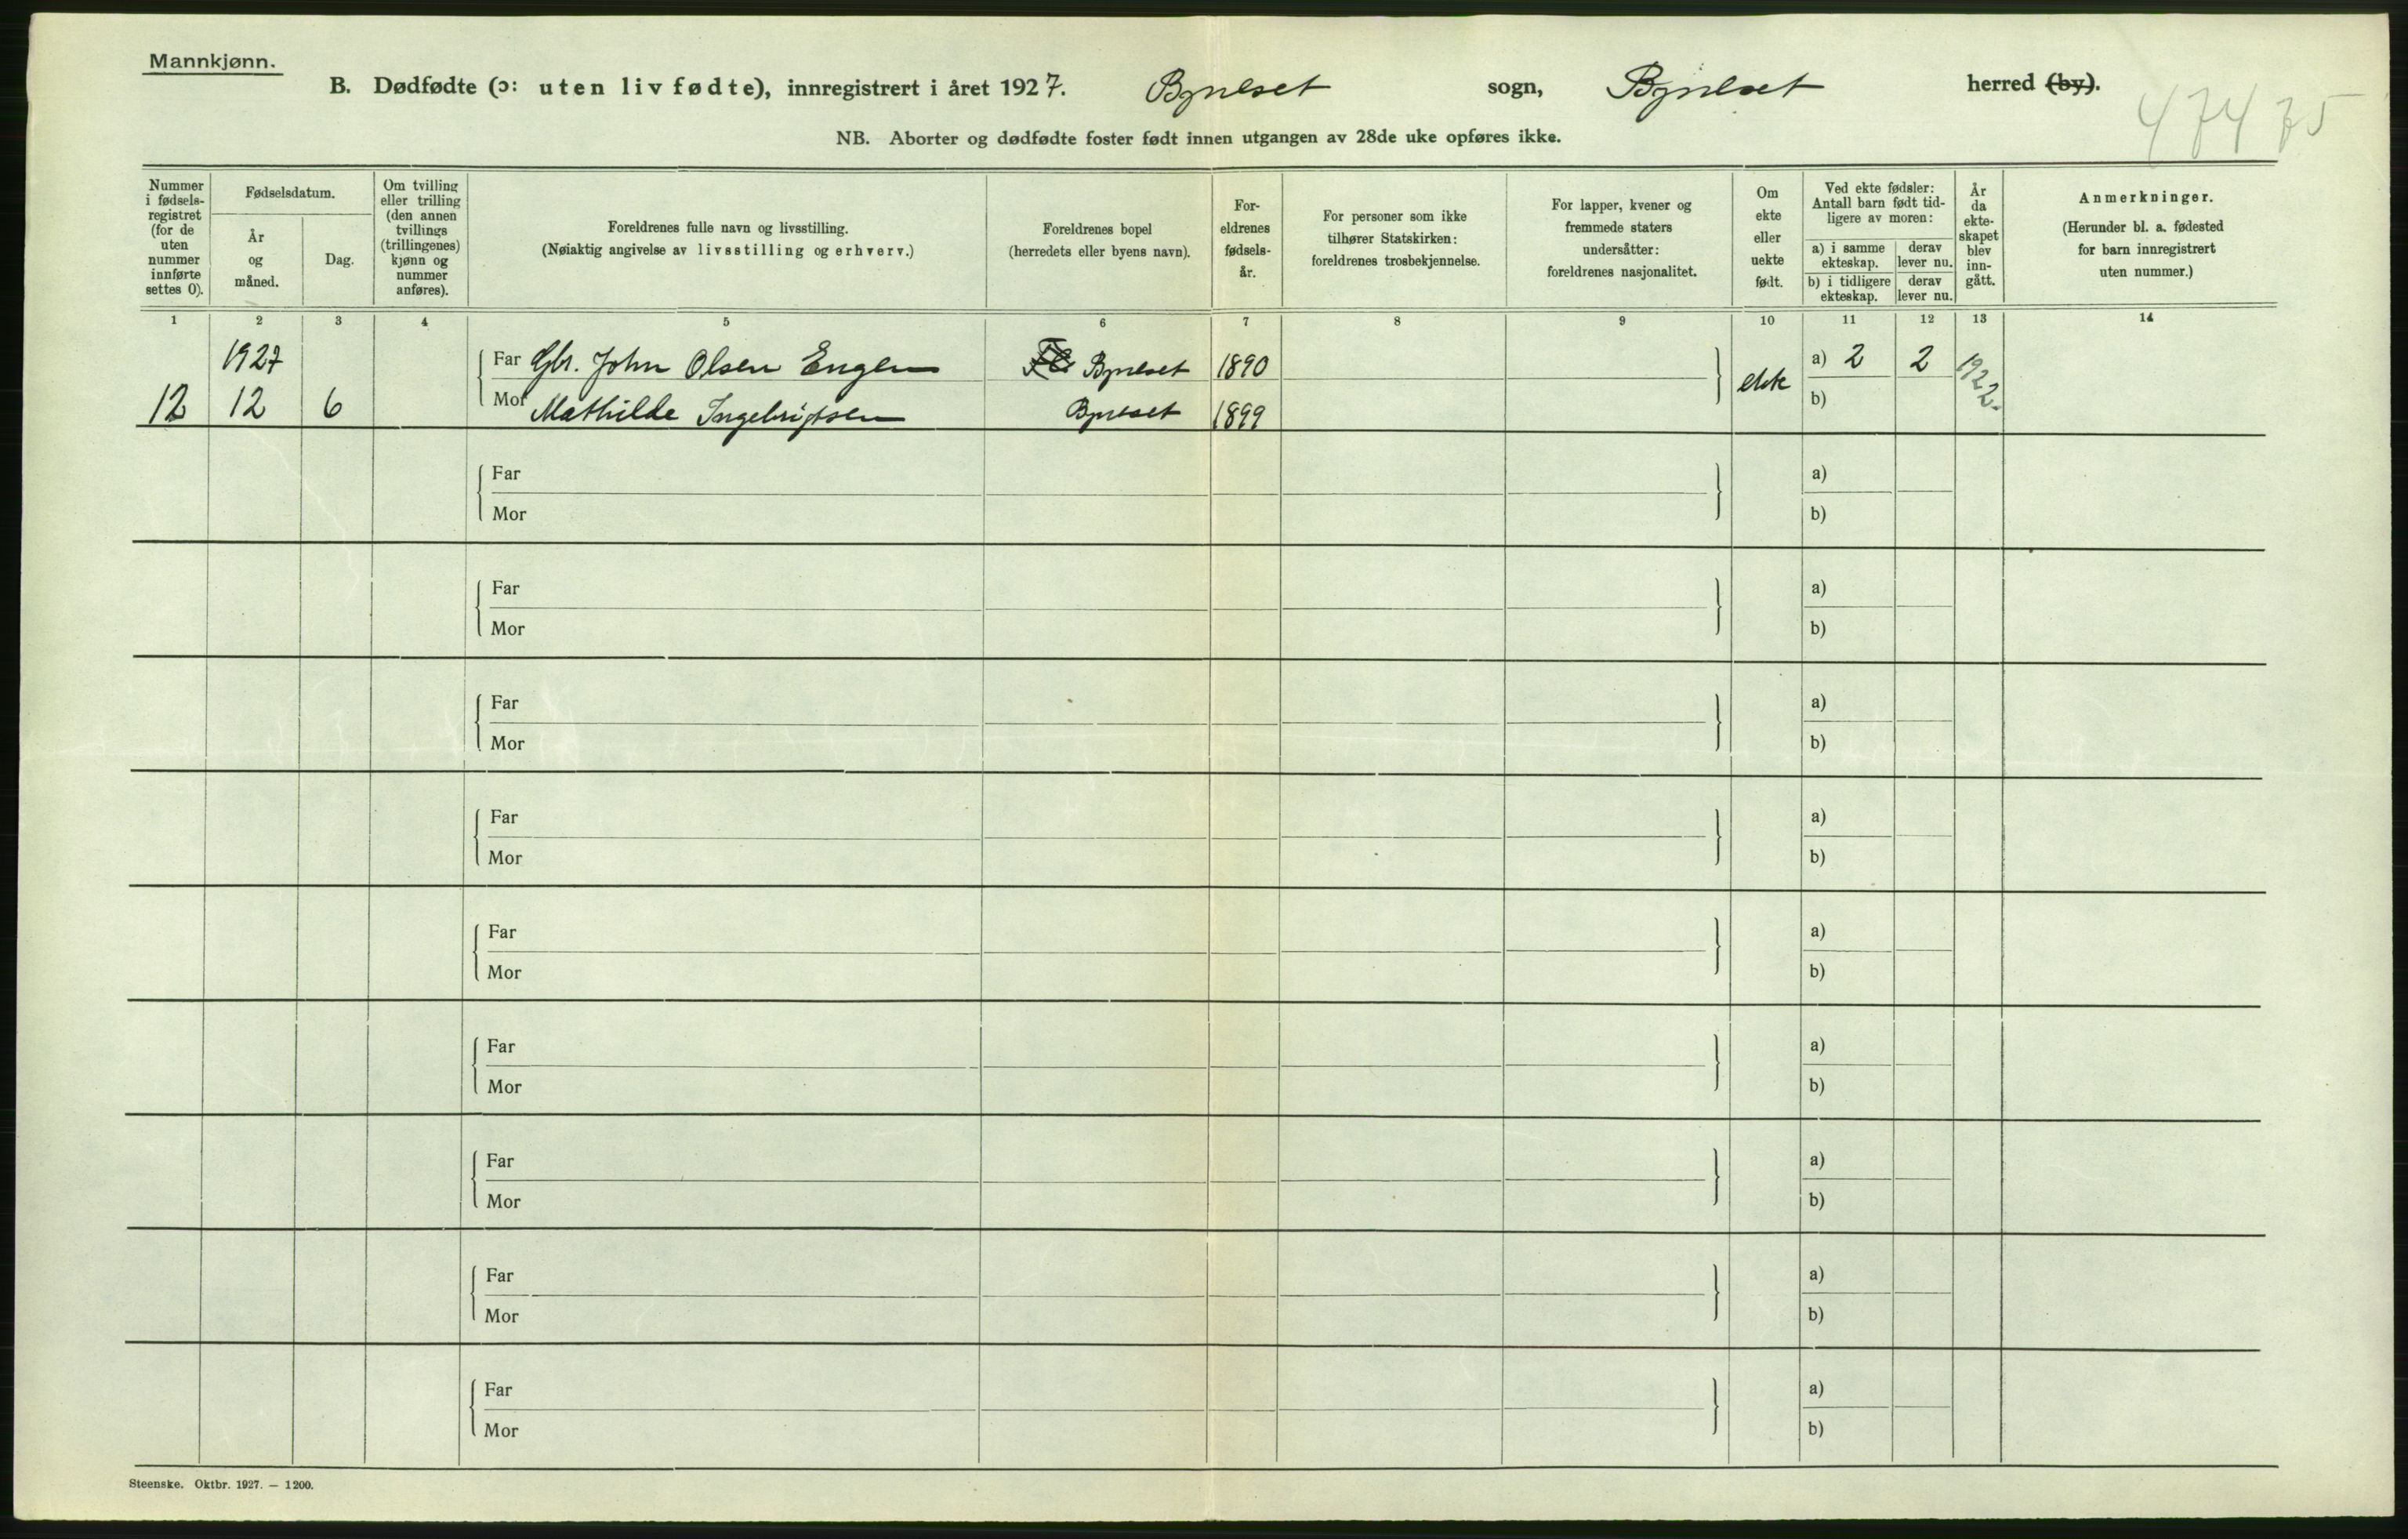 Mannkjønn.
B. Dødfødte (ɔ: uten liv fødte), innregistrert i året 1927. Byneset sogn, Byneset herred (by).
47475
NB. Aborter og dødfødte foster født innen utgangen av 28de uke opføres ikke.
Nummer i fødsels-registret (for de uten nummer innførte settes 0).
Fødselsdatum.
År og måned.
Dag.
Om tvilling eller trilling (den annen tvillings (trillingenes) kjønn og nummer anføres).
Foreldrenes fulle navn og livsstilling.
(Nøiaktig angivelse av livsstilling og erhverv.)
Foreldrenes bopel
(herredets eller byens navn).
For-eldrenes fødsels-år.
For personer som ikke tilhører Statskirken: foreldrenes trosbekjennelse.
For lapper, kvener og fremmede staters undersåtter: foreldrenes nasjonalitet.
Om ekte eller uekte født.
Ved ekte fødsler: Antall barn født tid-ligere av moren:
a) i samme ekteskap.
derav lever nu.
b) i tidligere ekteskap.
derav lever nu.
År da ekte-skapet blev inn-gått.
Anmerkninger.
(Herunder bl. a. fødested for barn innregistrert uten nummer.)
1 2 3 4 5 6 7 8 9 10 11 12 13 14
1927
Far Gbr. John Olsen Engen Byneset 1890
ekte
a) 2 2 1922.
12 12 6
Mor Mathilde Ingebrigtsen Byneset 1899
b)
Far a)
Mor b)
Far a)
Mor b)
Far a)
Mor b)
Far a)
Mor b)
Far a)
Mor b)
Far a)
Mor b)
Far a)
Mor b)
Far a)
Mor b)
Far a)
Mor b)
Steenske. Oktbr. 1927. — 1200.